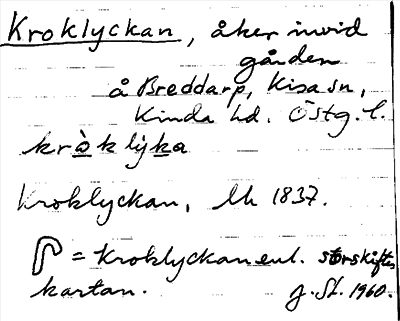 Kroklyckan, åker invid
gården
å Breddarp, Kisa sn,
Kinda hd. Östg. l.
kròklýka
Kroklyckan, LM 1837.
= Kroklyckan enl. storskiftes
kartan. J. St. 1960.